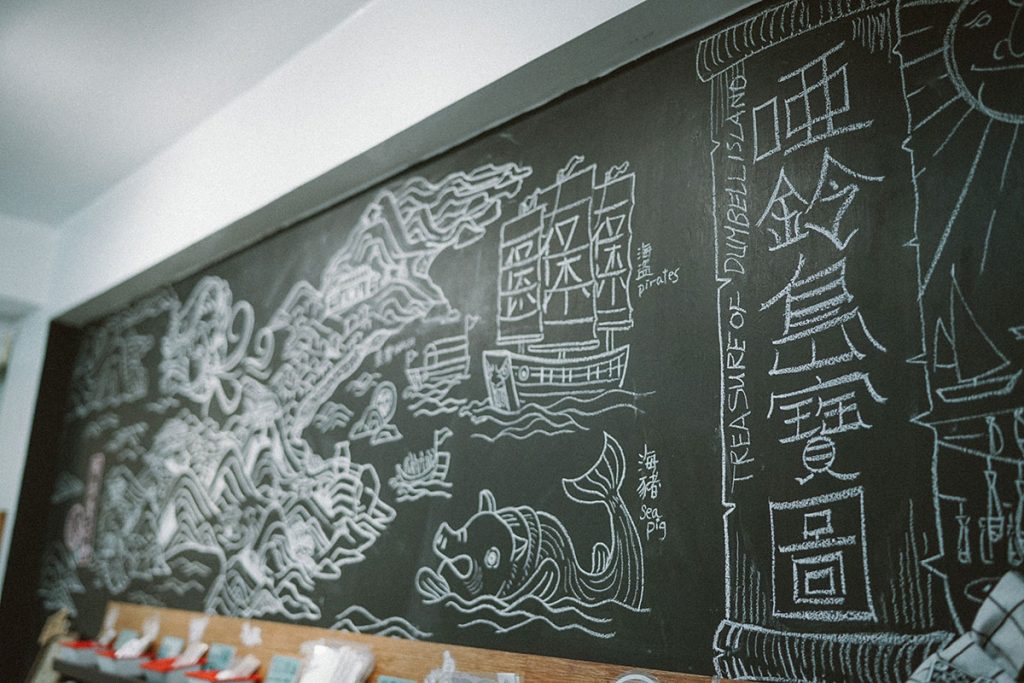 啞鈴島寶圖
TREASURE OF DUMBELL ISLAND
海盜
pirates
海豬
Sea
pig